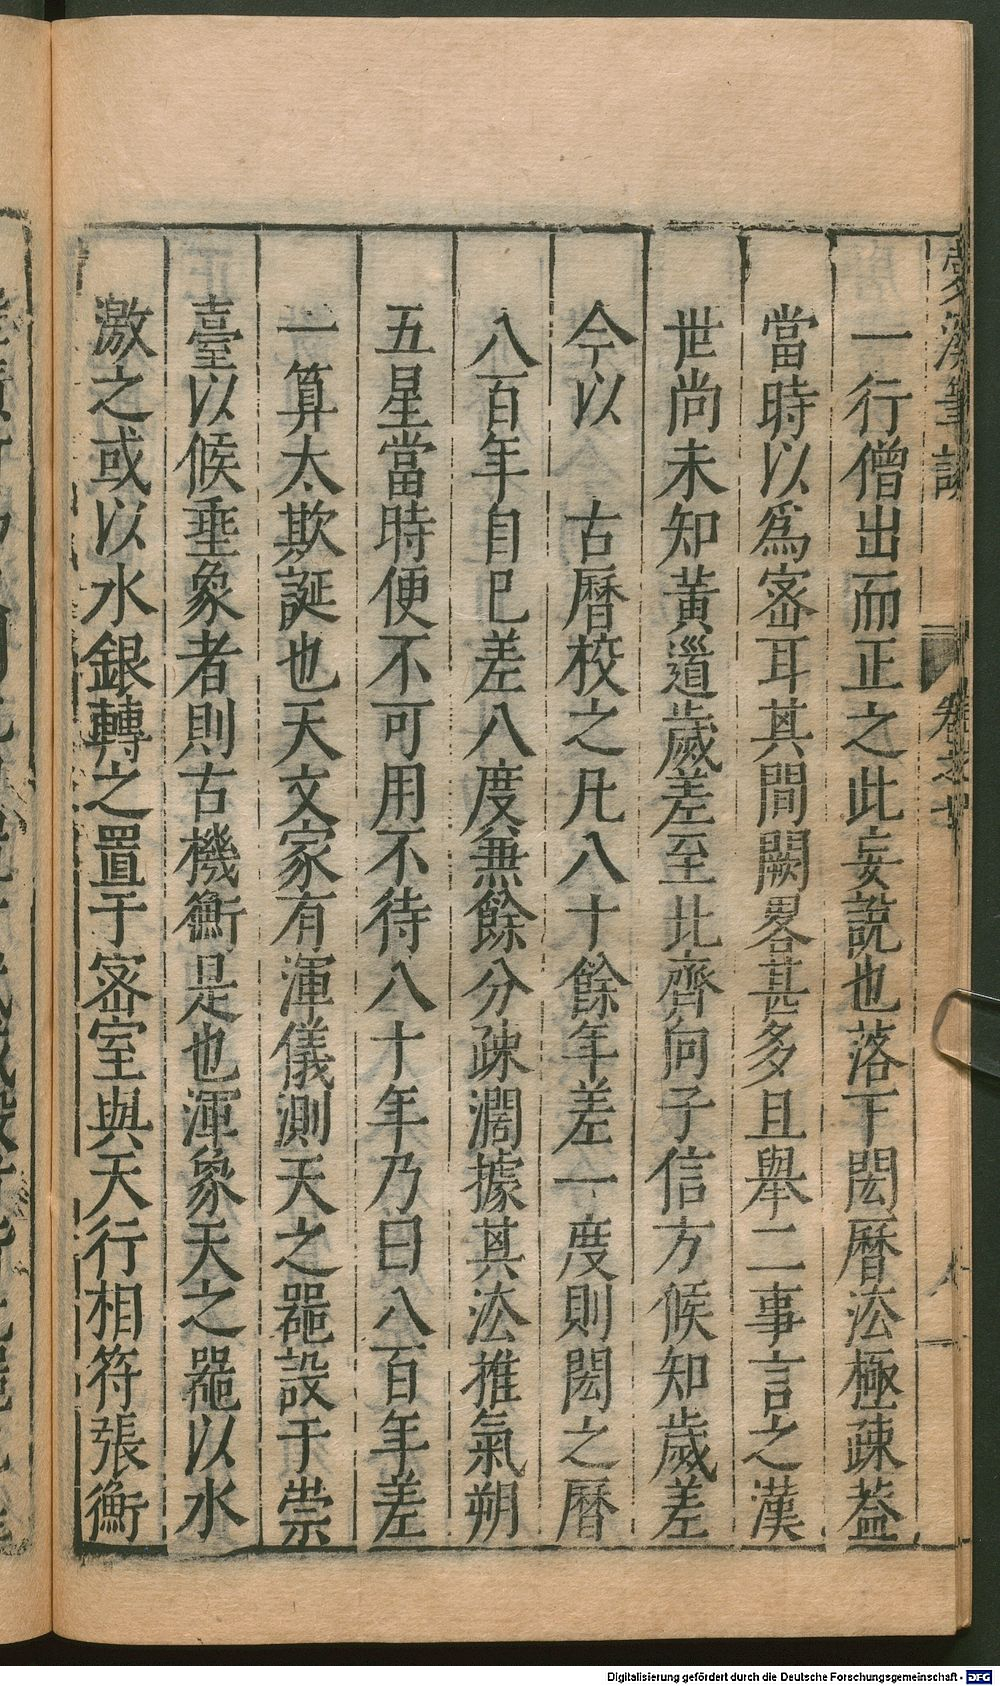 夢溪筆談 卷之七
一行僧出而正之此妄說也落下閎曆法極疎蓋
當時以爲宻耳其間闕畧甚多且舉二事言之漢
世尚未知黃道歲差至北齊向子信方候知歲差
今以 古曆校之凡八十餘年差一度則閎之曆
八百年自巳差八度兼餘分疎濶據其法推氣朔
五星當時便不可用不待八十年乃曰八百年差
一算太欺誕也天文家有渾儀測天之噐設于崇
臺以候垂象者則古機衡是也渾象天之噐以水
激之或以水銀轉之置于宻室與天行相符張衡
Digitalisierung gefördert durch die Deutsche Forschungsgemeinschaft - DFG